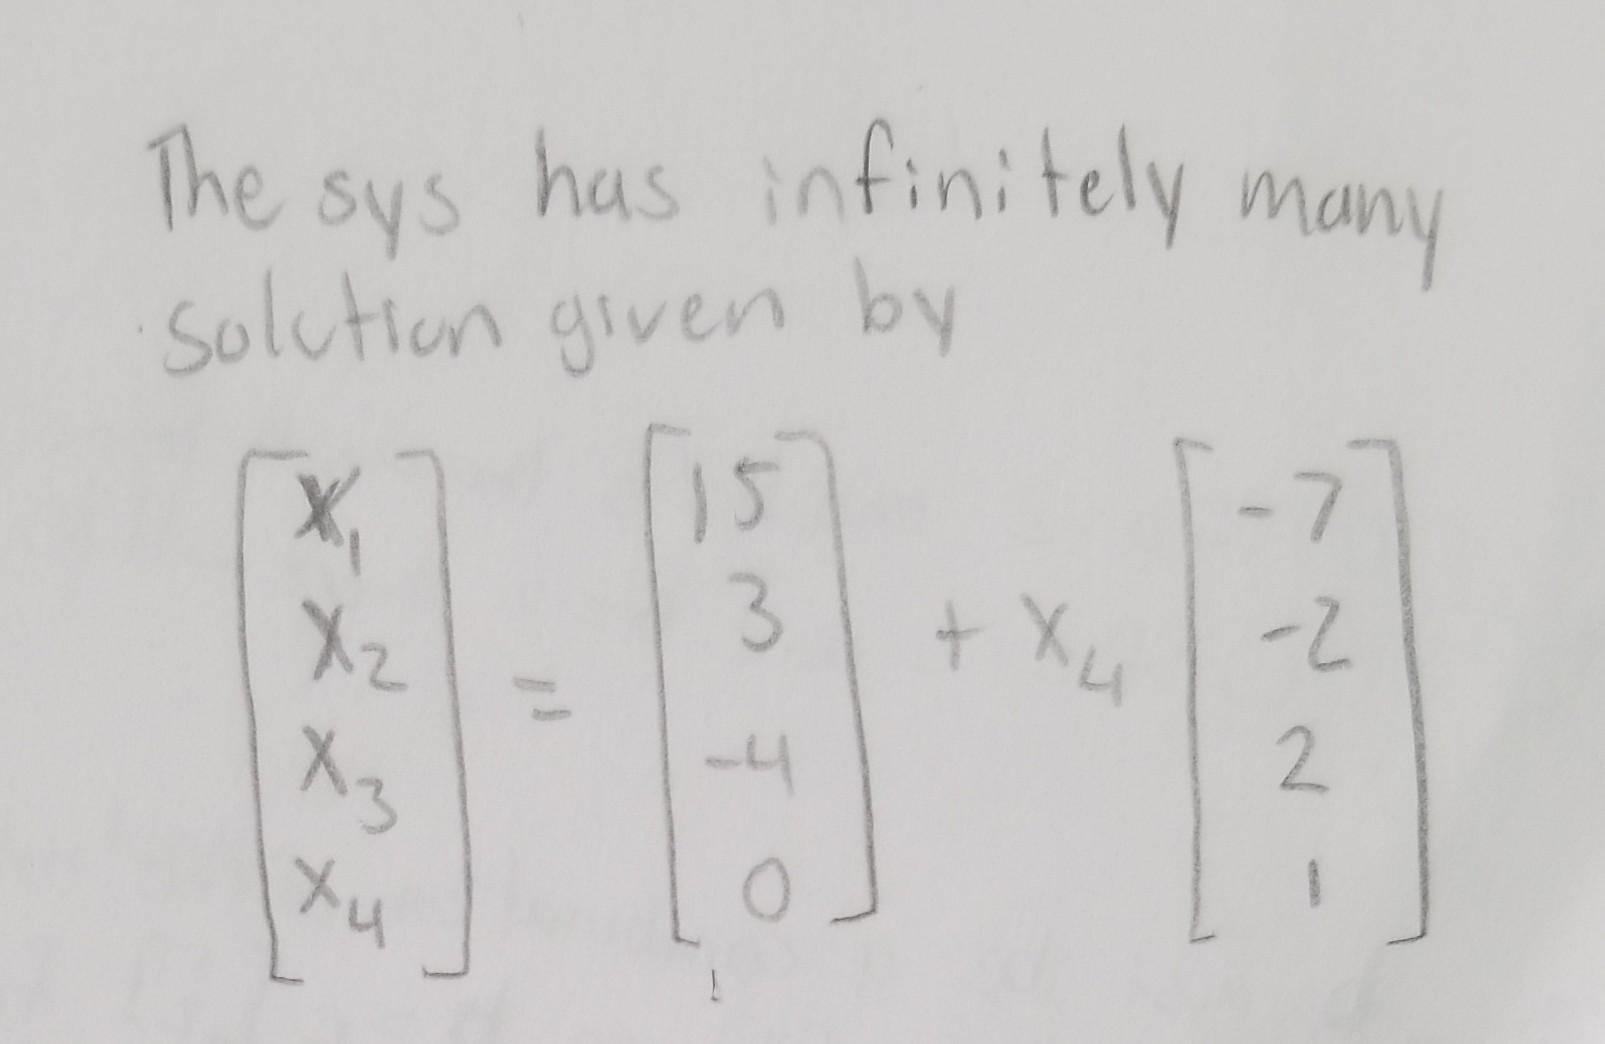 The sys has infinitely many
solution given by
[x₁ x₂ x₃ x₄] = [15 3 -4 0] + x₄ [-7 -2 2 1]